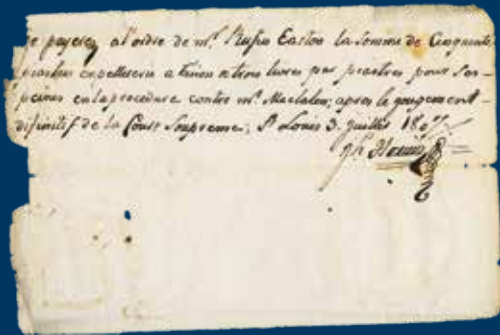 je payerez a l'ordre de mr. Rufus Easton la somme de Cinquante
piastres en pelleteries a raison de trois livres par piastres pour ses
peines en la procedure contre mr. ; apres le jougement
difinitif de la Court Soupreme; St Louis 3. juillet 1807